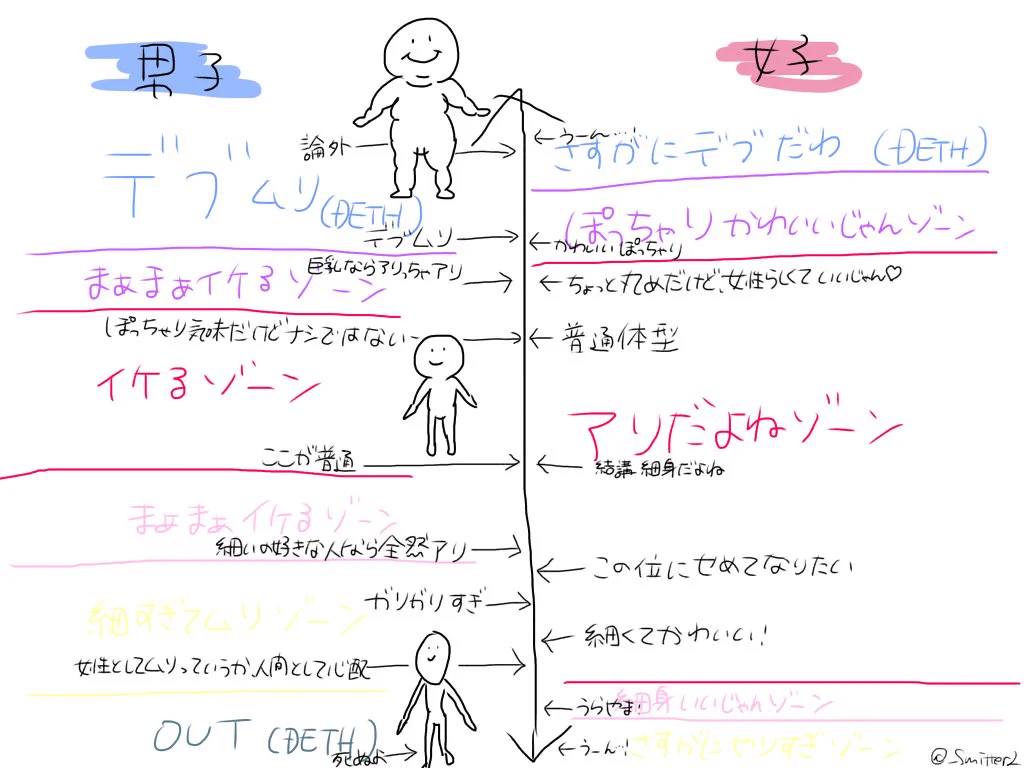 男子
論外
デブムリ(ĐETH)
デブムリ
巨乳ならアリっちゃアリ
まぁまぁイケるゾーン
ぽっちゃり気味だけどナシではない
イケるゾーン
ここが普通
まぁまぁイケるゾーン
細いの好きな人なら全然アリ
ガリガリすぎ
細すぎてムリゾーン
女性としてムリっていうか、人間として心配
OUT(ĐETH)
死ぬよ
女子
うーん…!
さすがにデブだわ(ĐETH)
ぽっちゃりかわいいじゃんゾーン
かわいいぽっちゃり
ちょっと丸めだけど、女性らしくていいじゃん♡
普通体型
アリだよねゾーン
結講細身だよね
この位にせめてなりたい
細くてかわいい!
うらやま!
細身いいじゃんゾーン
うーん..!
さすがにヤリすぎゾーン
@_Smitter2